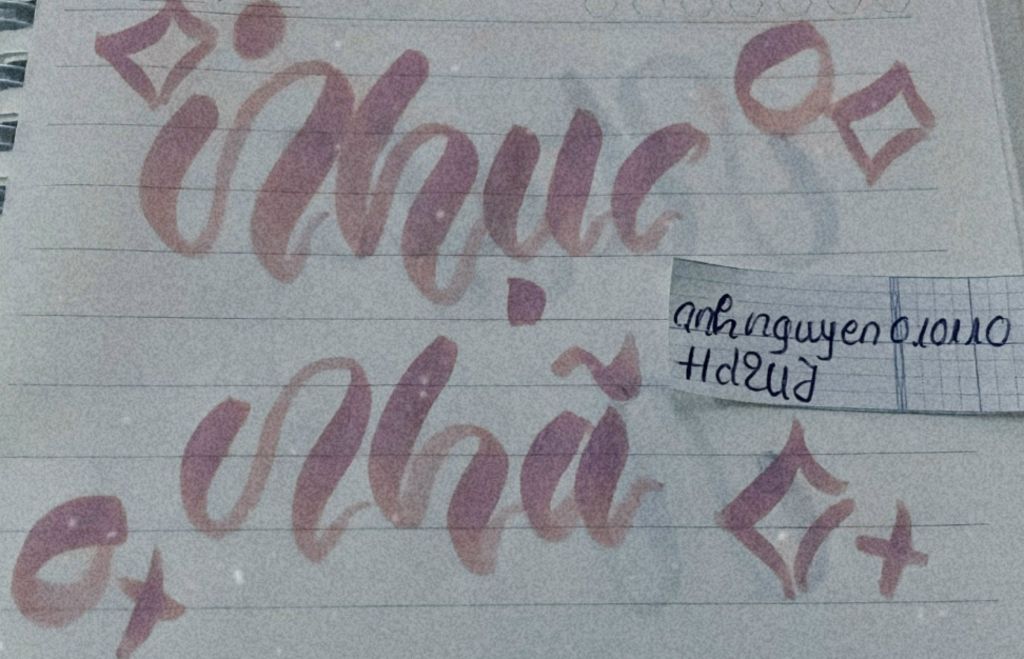 Nhục
Nhã
anhnguyen010110